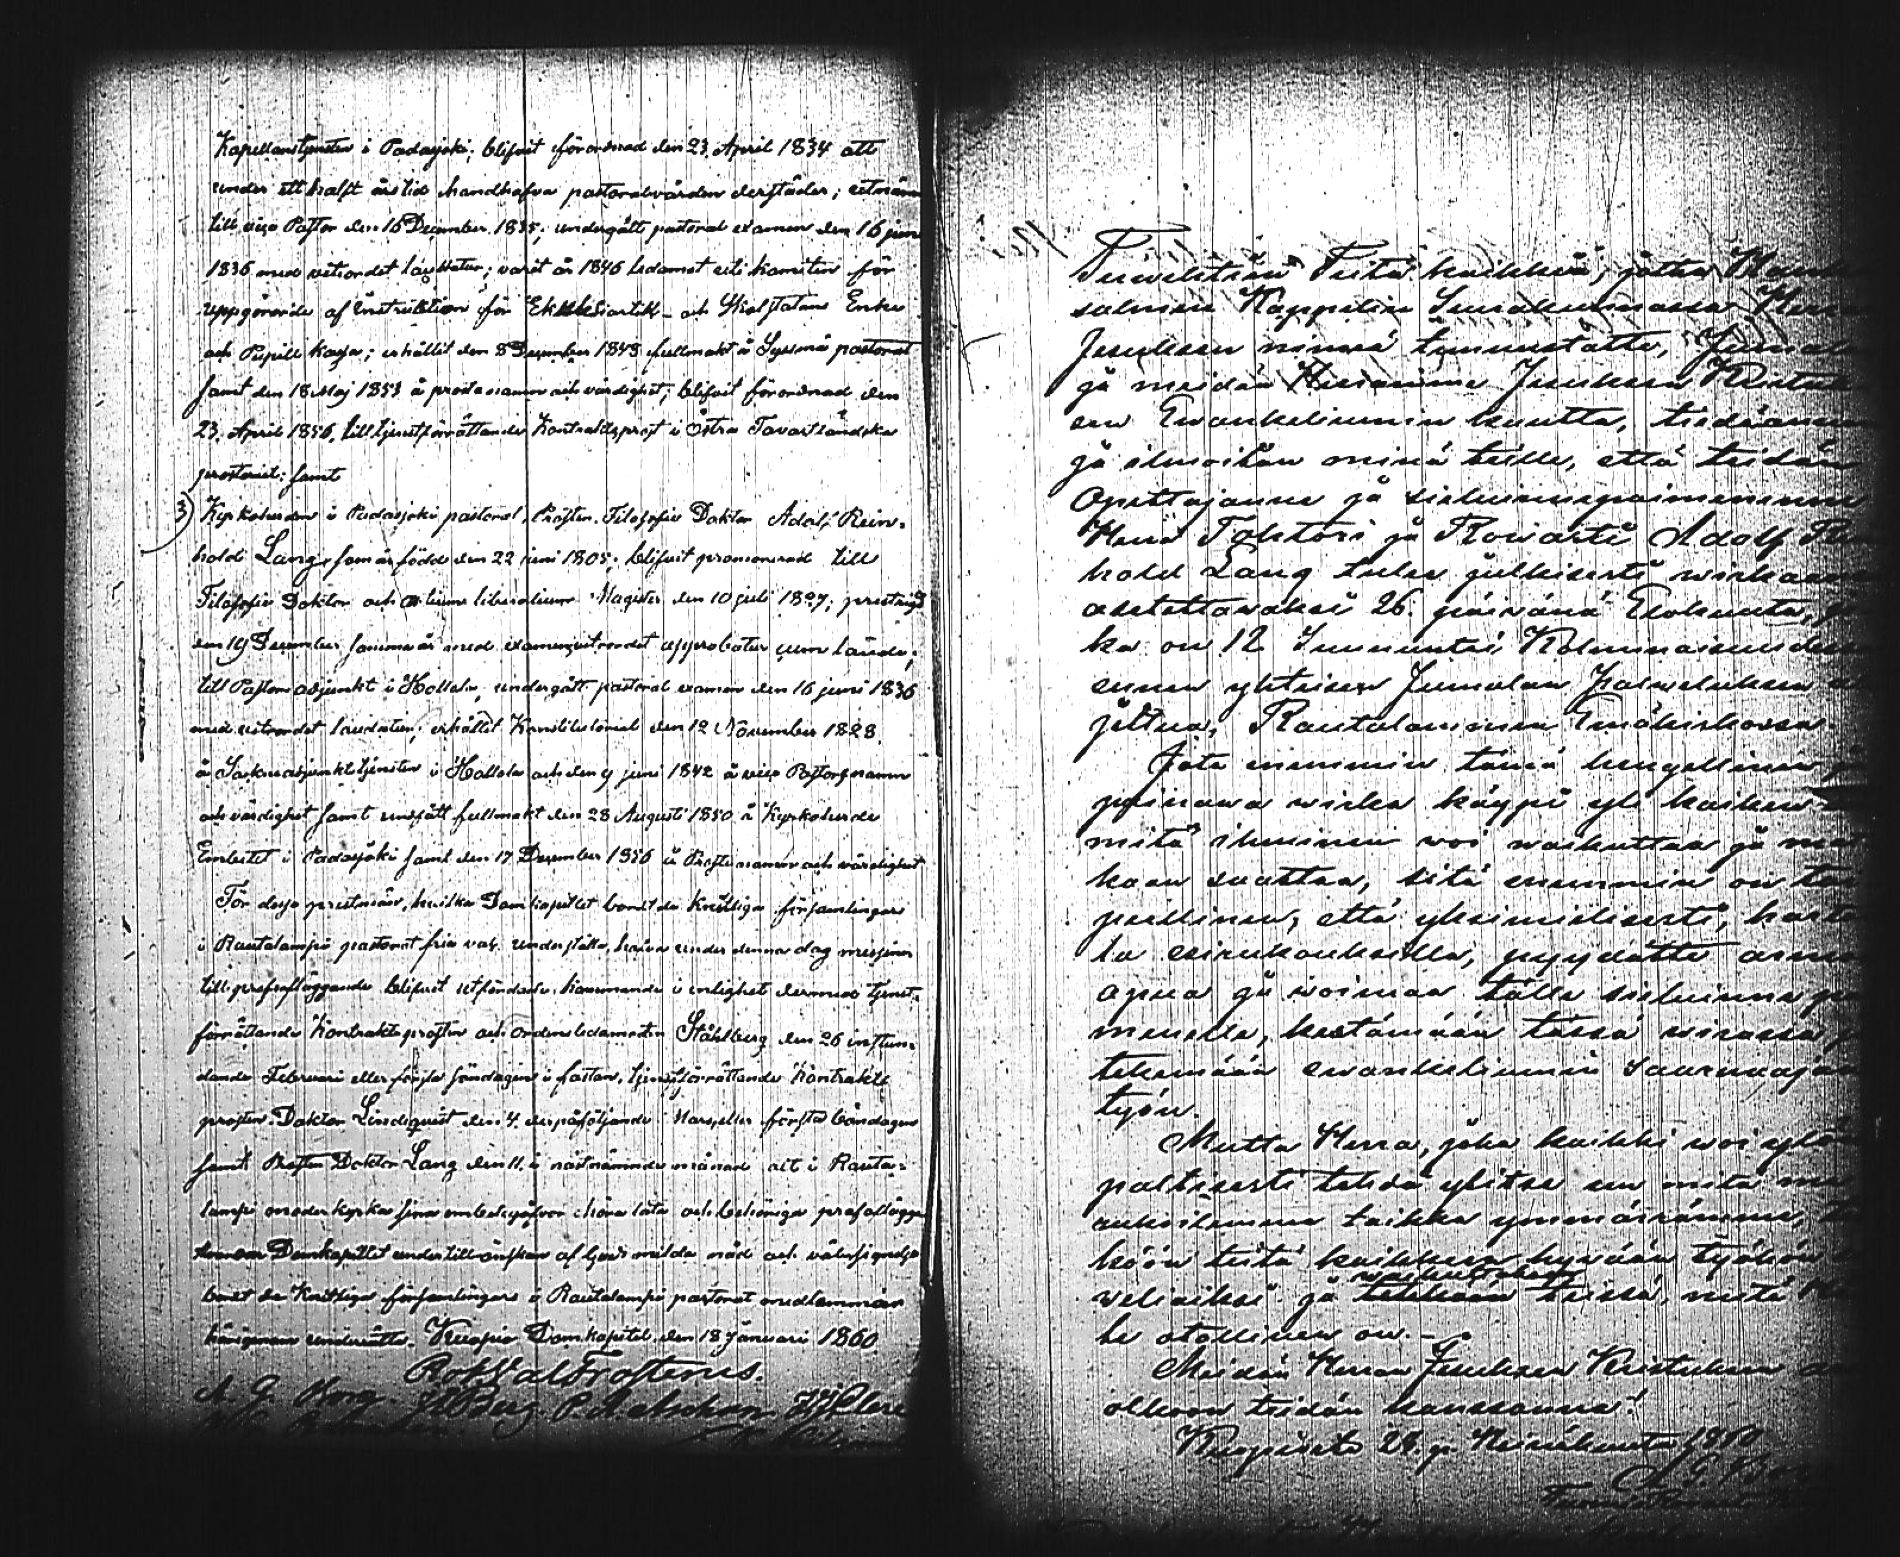 Kapellanstjensten i Padasjoki; blifvit förordnad den 23 April 1834 att
under ett halft års tid handhafva pastoralvården derstädes; utnämnd
till vice Pastor den 16 December 1835; undergått pastoral examen den 16 juni
1836 med vitsordet laudatur; varit år 1846 ledamot uti komitén för
uppgörande af instruktion för Ekklesiastik- och Skolstatens Enke
och Pupill kassa; erhållit den 8 December 1848 fullmakt å Sysmä pastorat
samt den 18 Maj 1853 å prosts namn och värdighet; blifvit förordnad den
23 April 1856 till tjenstförrättande Kontraktsprost i östra Tavastländska
prosteriet; samt
3) Kyrkoherden i Padasjoki pastorat, Prosten, Filosofie Doktor Adolf Rein-
hold Lang, som är född den 22 juni 1805; blifvit promoverad till
Filosofie Doktor och artium liberalium Magister den 10 juli 1827; prestvigd
den 19 December samma år med examensvitsordet approbatur cum laude;
till Pastors adjunkt i Hollola, undergått pastoral examen den 16 juni 1836
med vitsordet laudatur; erhållit Konstitutorial den 12 November 1828
å Sockneadjunktstjensten i Hollola och den 9 juni 1842 å vice Pastors namn
och värdighet samt undfått fullmakt den 28 Augusti 1850 å Kyrkoherde
Embetet i Padasjoki samt den 17 December 1856 å Prosts namn och värdighet
För desse prestmän, hvilka Domkapitlet bordt de kristliga församlingar
i Rautalampi pastorat fria val underställa, hafva under denna dag missiver
till profs afläggande blifvit utfärdade, kommande i enlighet dermed tjenst-
förrättande Kontraktsprosten och Ordensledamoten Ståhlberg den 26 instun-
dande Februari eller första söndagen i fastan, tjenstförrättande Kontrakts
prosten, Doktor Lindequist den 4 derpåföljande Mars eller första böndagen
samt Prosten Doktor Lang den 11 i nästnämnde månad att i Rauta-
lampi moderkyrka sina embetsgåfvor höra låta och behöriga prof aflägga
hvarom Domkapitlet under tillönskan af Guds milda nåd och välsignelse
bordt de Kristliga församlingar i Rautalampi pastorat medlemmar
härigenom underrätta. Kuopio Domkapitel, den 18 Januari 1860
Rob Val Frosterus.
A. G. Borg. P. A. Aschan
Terwehtien Teitä kaikkia, jotka Hanka
salmen Kappelin Seurakunnassa Herran
Jesuksen nimeä tunnustatte, Jumalan
ja meidän Herramme Jesuksen Kristuk
sen Ewankeliumin kautta, tiedoannan
ja ilmoitan minä teille, että teidän
Opettajanne ja sieluinnepaimenenne
Herra Tohtori ja Rowasti Adolf Rein
hold Lang tulee julkisesti wirkaansa
asetettawaksi 26 päiwänä Elokuuta, jo
ka on 12 Sunnuntai Kolminaisuudesta
ennen yhteisen Jumalan Palweluksen al
jettua, Rautalammen Emäkirkossa.
Jota enemmin tämä hengellinen ja
painawa wirka käypi yli kaiken
mitä ihminen woi waikuttaa ja mat
kaan saattaa, sitä enemmin on tar
peellinen, että yksimielisesti, harta
la esirukouksilla, pyydätte armoa
apua ja woimaa tälle sieluinne pai
menelle, kestämään tässä wirassa ja
tekemään ewankeliumin Saarnaajan
työn.
Mutta Herra, joka kaikki woi ylön
paltisesti tehdä ylitse sen mitä me
anoilemme taikka ymmärrämme, teh
köön teitä kaikkeen hywään työhön
weliaiksi ja waikuttakoon teissä, mitä Hä
ne otollinen on. -
Meidän Herran Jesuksen Kristuksen ar
olkoon teidän kanssanne!
Kuopiosta 28 p. Heinäkuuta 1860
A. G. Borg